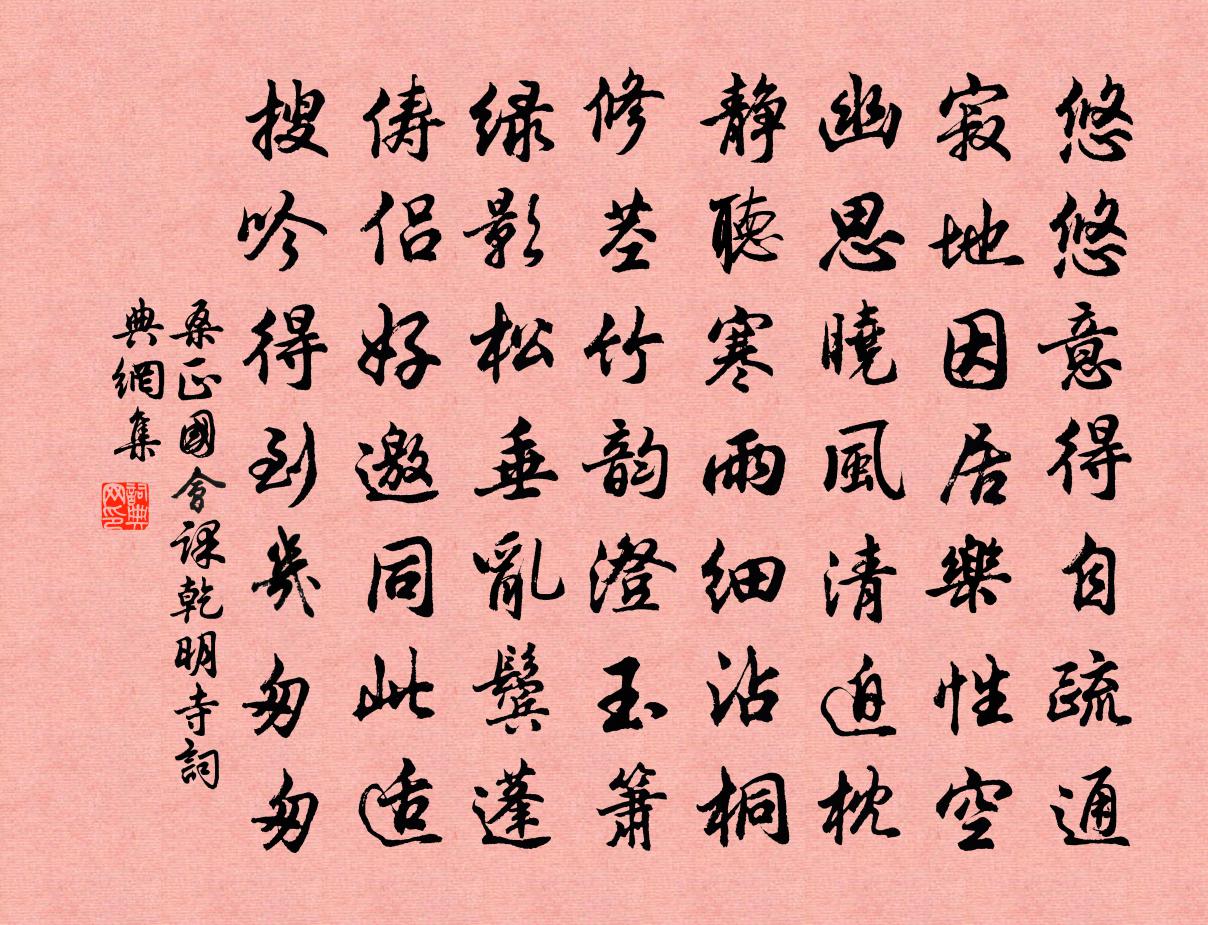 悠悠意得自疏通
寂地因居樂性空
幽思曉風清迫枕
静聽寒雨細沾桐
修莖竹韵澄玉簫
緑影松垂亂鬢蓬
儔侣好邀同此适
搜吟得到幾匆匆
桑正國會課乾明寺詞
典網集
詞典
网印